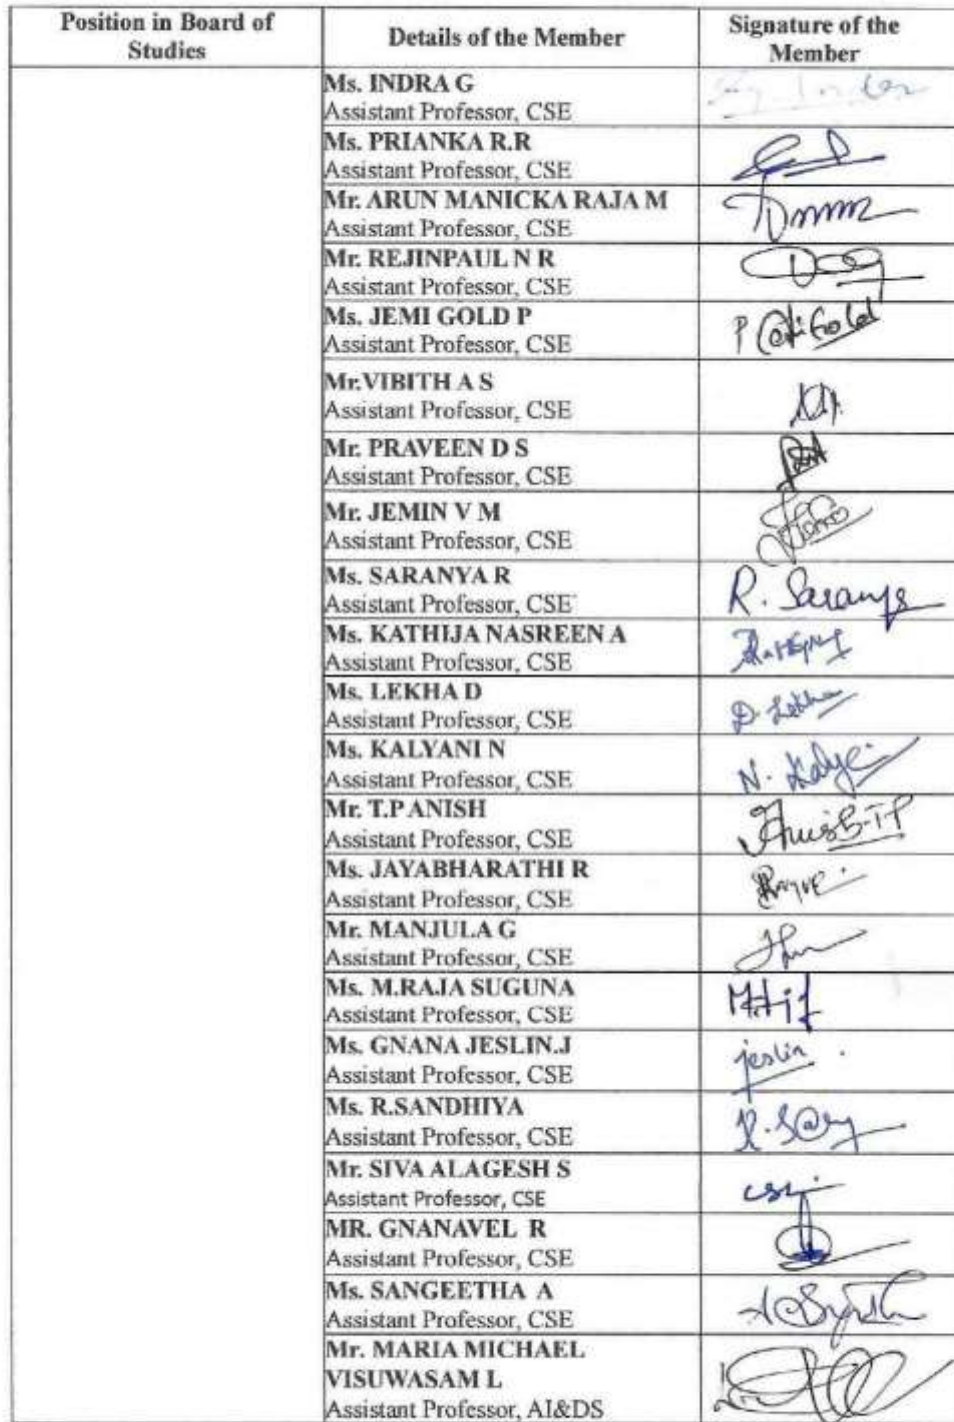 Position in Board of
Studies
Details of the Member
Signature of the
Member
Ms. INDRA G
Assistant Professor, CSE
Ms. PRIANKA R.R
Assistant Professor, CSE
Mr. ARUN MANICKA RAJA M
Assistant Professor, CSE
Mr. REJINPAUL N R
Assistant Professor, CSE
Ms. JEMI GOLD P
Assistant Professor, CSE
Mr.VIBITH A S
Assistant Professor, CSE
Mr. PRAVEEN D S
Assistant Professor, CSE
Mr. JEMIN V M
Assistant Professor, CSE
Ms. SARANYA R
Assistant Professor, CSE
R. Saranya
Ms. KATHIJA NASREEN A
Assistant Professor, CSE
Ms. LEKHA D
Assistant Professor, CSE
D. Lekha
Ms. KALYANI N
Assistant Professor, CSE
Mr. T.P ANISH
Assistant Professor, CSE
Ms. JAYABHARATHI R
Assistant Professor, CSE
Mr. MANJULA G
Assistant Professor, CSE
Ms. M.RAJA SUGUNA
Assistant Professor, CSE
Ms. GNANA JESLIN.J
Assistant Professor, CSE
jeslin
Ms. R.SANDHIYA
Assistant Professor, CSE
Mr. SIVA ALAGESH S
Assistant Professor, CSE
MR. GNANAVEL R
Assistant Professor, CSE
Ms. SANGEETHA A
Assistant Professor, CSE
Mr. MARIA MICHAEL
VISUWASAM L
Assistant Professor, AI&DS